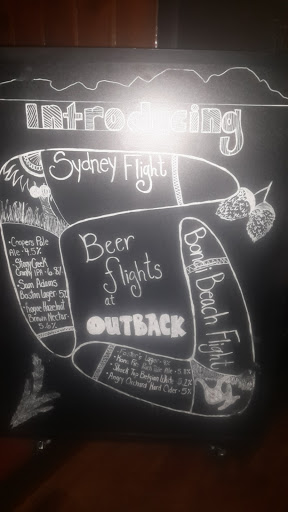 Introducing
Sydney Flight
Beer
flights
at
OUTBACK
Bondi Beach Flight
• Coopers Pale
Ale - 4.5%
• Stony Creek
Cranky IPA - 6.8%
• Sam Adams
Boston Lager 5%
• Rogue Hazelnut
Brown Nectar -
5.6%
• Foster's Lager -
• Kona
Ale - 5.
• Shock Top Belgian White 5.2%
• Angry Orchard Hard Cider - 5%